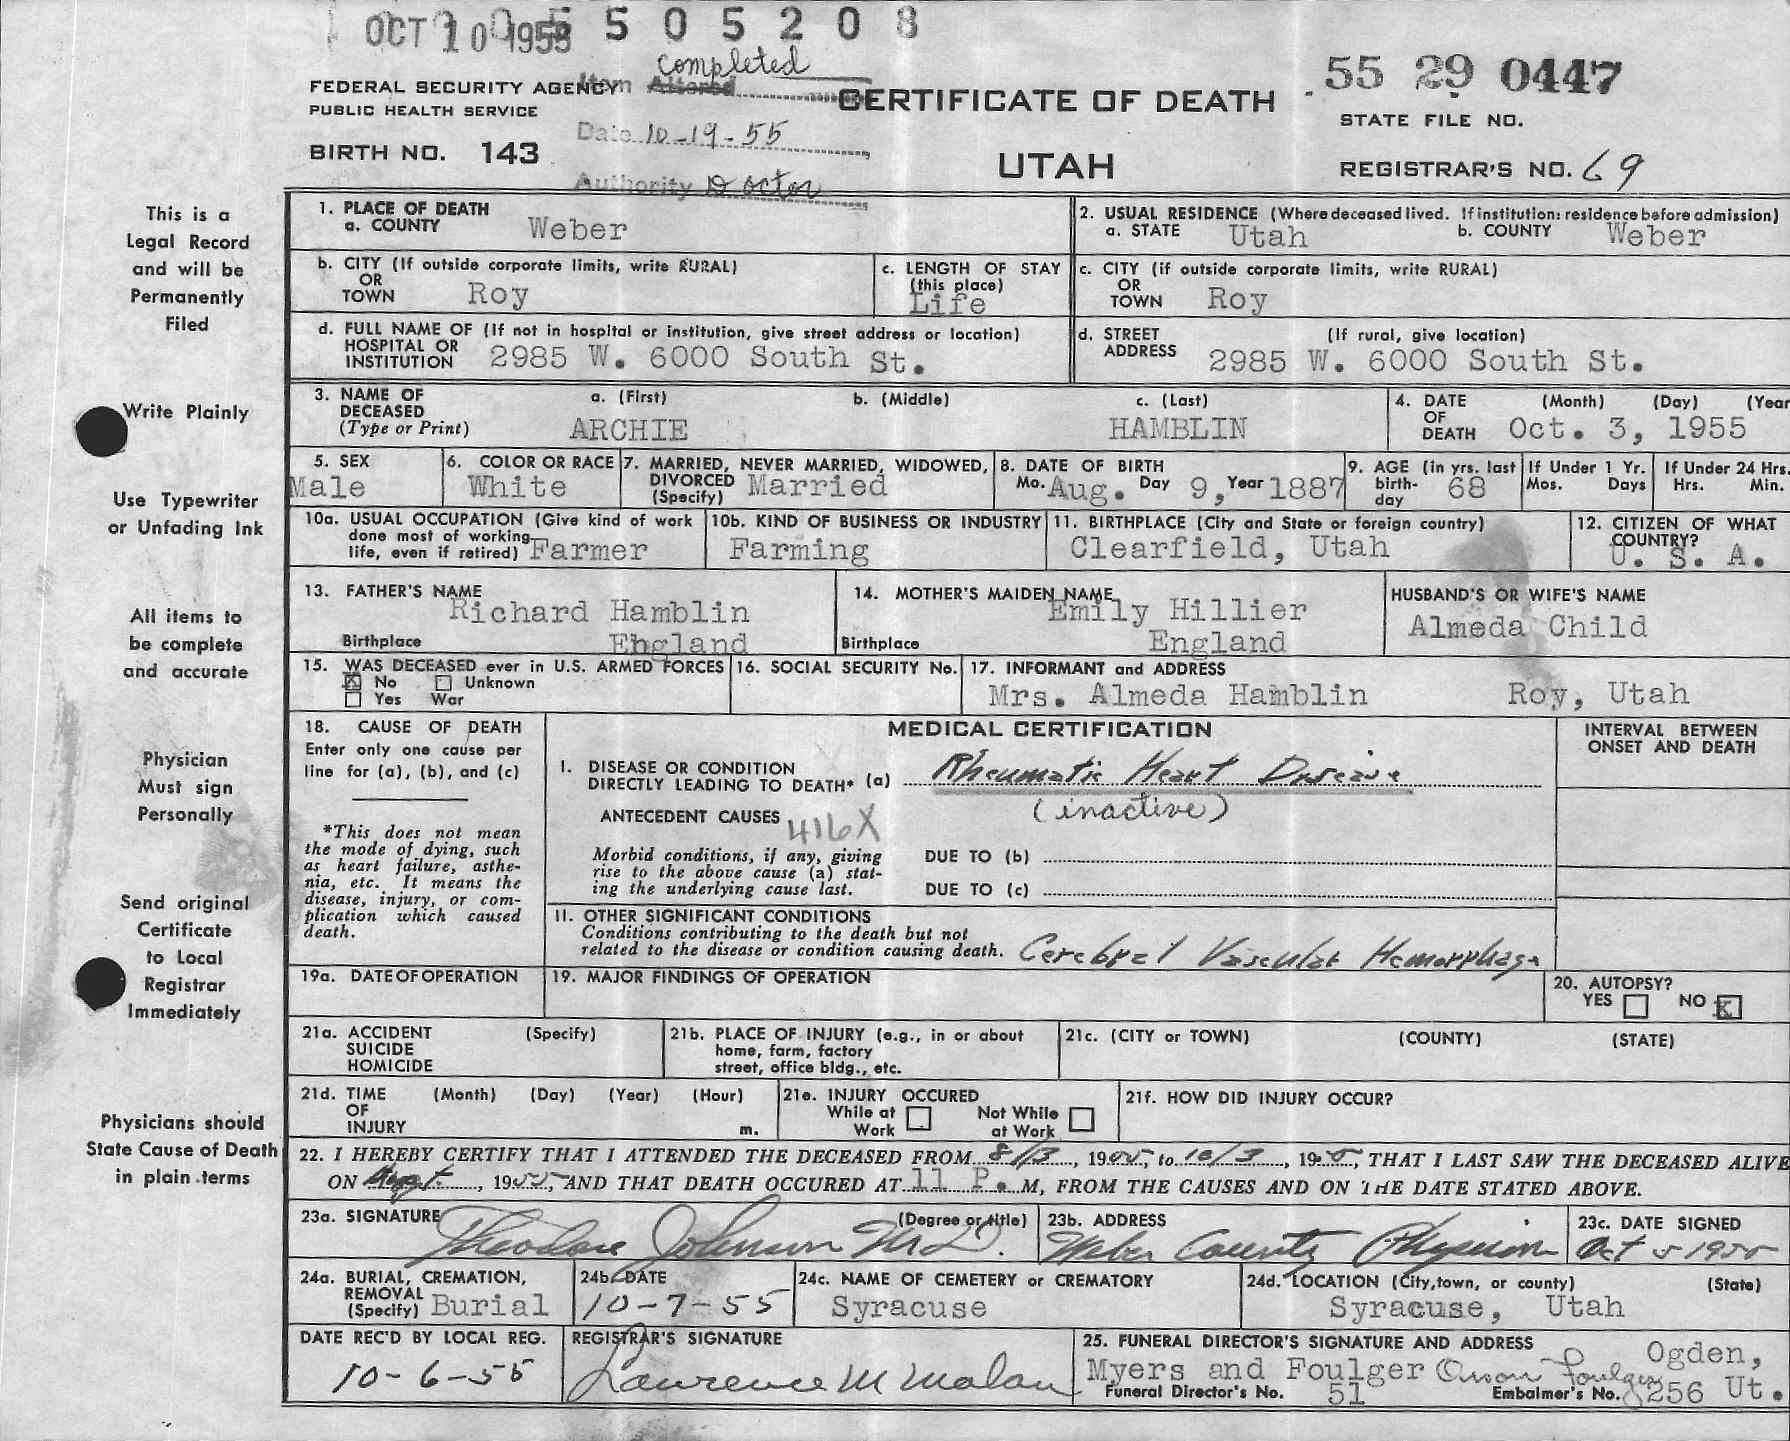 OCT 10 1955 5505208
completed
FEDERAL SECURITY AGENCY Item Altered
PUBLIC HEALTH SERVICE
CERTIFICATE OF DEATH
55 29 0447
STATE FILE NO.
Date 10-19-55
BIRTH NO. 143
UTAH
REGISTRAR'S NO. 69
Authority Doctor
This is a
Legal Record
and will be
Permanently
Filed
Write Plainly
Use Typewriter
or Unfading Ink
All items to
be complete
and accurate
Physician
Must sign
Personally
Send original
Certificate
to Local
Registrar
Immediately
Physicians should
State Cause of Death
in plain terms
1. PLACE OF DEATH
a. COUNTY Weber
2. USUAL RESIDENCE (Where deceased lived. If institution: residence before admission)
a. STATE Utah b. COUNTY Weber
b. CITY (If outside corporate limits, write RURAL)
OR
TOWN Roy
c. LENGTH OF STAY
(this place)
Life
c. CITY (if outside corporate limits, write RURAL)
OR
TOWN Roy
d. FULL NAME OF (If not in hospital or institution, give street address or location)
HOSPITAL OR
INSTITUTION 2985 W. 6000 South St.
d. STREET (If rural, give location)
ADDRESS 2985 W. 6000 South St.
3. NAME OF a. (First) b. (Middle) c. (Last)
DECEASED
(Type or Print) ARCHIE HAMBLIN
4. DATE (Month) (Day) (Year
OF
DEATH Oct. 3, 1955
5. SEX
Male
6. COLOR OR RACE
White
7. MARRIED, NEVER MARRIED, WIDOWED,
DIVORCED
(Specify) Married
8. DATE OF BIRTH
Mo. Aug. Day 9, Year 1887
9. AGE (in yrs. last
birth-
day 68
If Under 1 Yr.
Mos. Days
If Under 24 Hrs.
Hrs. Min.
10a. USUAL OCCUPATION (Give kind of work
done most of working
life, even if retired) Farmer
10b. KIND OF BUSINESS OR INDUSTRY
Farming
11. BIRTHPLACE (City and State or foreign country)
Clearfield, Utah
12. CITIZEN OF WHAT
COUNTRY?
U. S. A.
13. FATHER'S NAME
Richard Hamblin
Birthplace England
14. MOTHER'S MAIDEN NAME
Emily Hillier
Birthplace England
HUSBAND'S OR WIFE'S NAME
Almeda Child
15. WAS DECEASED ever in U.S. ARMED FORCES
X No Unknown
Yes War
16. SOCIAL SECURITY No.
17. INFORMANT and ADDRESS
Mrs. Almeda Hamblin Roy, Utah
18. CAUSE OF DEATH
Enter only one cause per
line for (a), (b), and (c)
*This does not mean
the mode of dying, such
as heart failure, asthe-
nia, etc. It means the
disease, injury, or com-
plication which caused
death.
MEDICAL CERTIFICATION
INTERVAL BETWEEN
ONSET AND DEATH
I. DISEASE OR CONDITION
DIRECTLY LEADING TO DEATH* (a) Rheumatic Heart Disease
(inactive)
ANTECEDENT CAUSES 416X
Morbid conditions, if any, giving
rise to the above cause (a) stat-
ing the underlying cause last.
DUE TO (b)
DUE TO (c)
II. OTHER SIGNIFICANT CONDITIONS
Conditions contributing to the death but not
related to the disease or condition causing death. Cerebral Vascular Hemorrhage
19a. DATE OF OPERATION
19. MAJOR FINDINGS OF OPERATION
20. AUTOPSY?
YES NO X
21a. ACCIDENT (Specify)
SUICIDE
HOMICIDE
21b. PLACE OF INJURY (e.g., in or about
home, farm, factory
street, office bldg., etc.
21c. (CITY or TOWN) (COUNTY) (STATE)
21d. TIME (Month) (Day) (Year) (Hour)
OF
INJURY m.
21e. INJURY OCCURED
While at Work Not While at Work
21f. HOW DID INJURY OCCUR?
22. I HEREBY CERTIFY THAT I ATTENDED THE DECEASED FROM 8/13, 1955, to 10/3, 1955, THAT I LAST SAW THE DECEASED ALIVE
ON August, 1955, AND THAT DEATH OCCURED AT 11 P. M, FROM THE CAUSES AND ON THE DATE STATED ABOVE.
23a. SIGNATURE (Degree or title)
Theodore Johnson M.D.
23b. ADDRESS
Weber County Physician
23c. DATE SIGNED
Oct 5 1955
24a. BURIAL, CREMATION,
REMOVAL
(Specify) Burial
24b. DATE
10-7-55
24c. NAME OF CEMETERY or CREMATORY
Syracuse
24d. LOCATION (City, town, or county) (State)
Syracuse, Utah
DATE REC'D BY LOCAL REG.
10-6-55
REGISTRAR'S SIGNATURE
Lawrence M Malan
25. FUNERAL DIRECTOR'S SIGNATURE AND ADDRESS Ogden,
Myers and Foulger Orson Foulger
Funeral Director's No. 51 Embalmer's No. 256 Ut.